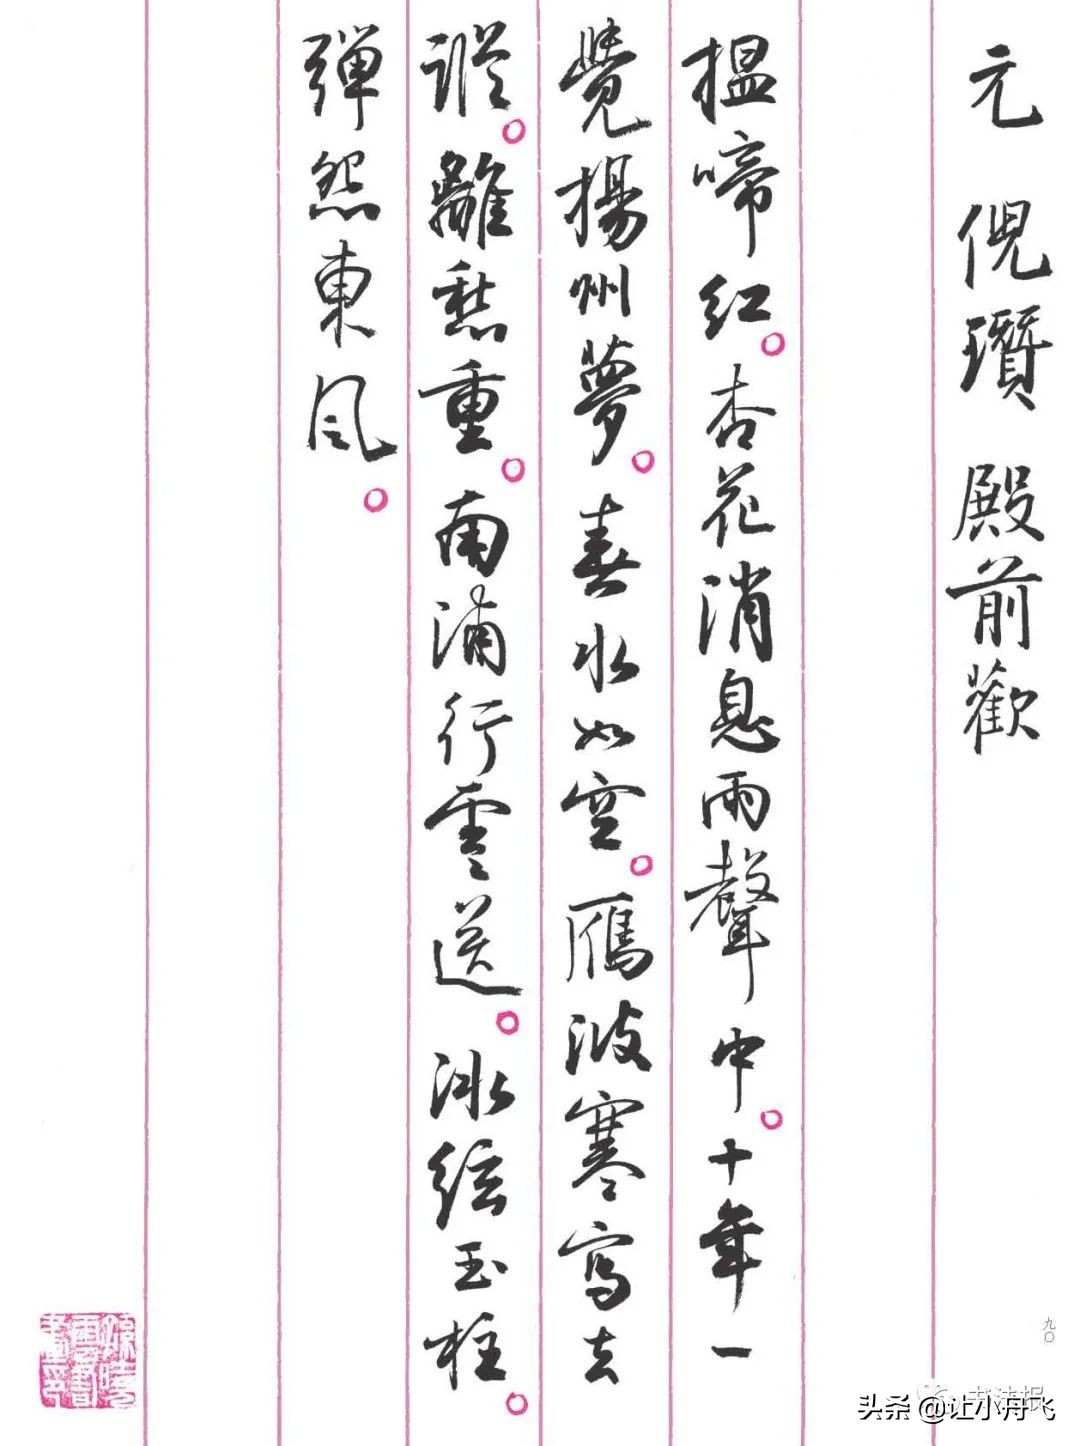 元 倪瓚 殿前歡
揾啼紅。杏花消息雨聲中。十年一
覺揚州夢。春水如空。鴈波寒寫去
蹤。離愁重。南浦行雲送。冰絃玉柱。
彈怨東風。
九〇
书法报
头条 @让小丹飞